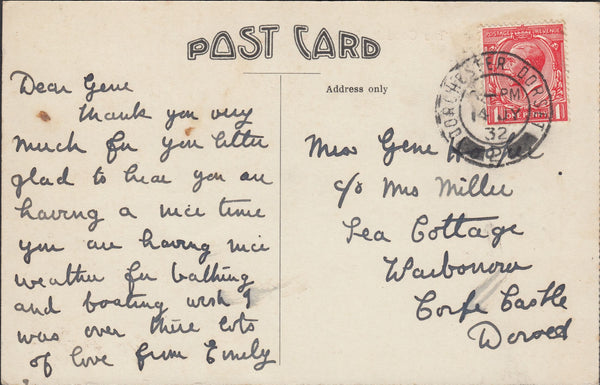 POST CARD
Dear Gene
Thank you very
much for you letter
glad to hear you are
having a nice time
you are having nice
weather for bathing
and boating wish I
was over there lots
of love from Emily
Address only
Miss Gene
c/o Mrs Miller
Sea Cottage
Worbarrow
Corfe Castle
Dorset
POSTAGE REVENUE
1 ONE PENNY 1
DORCHESTER DORSET
PM
14
32